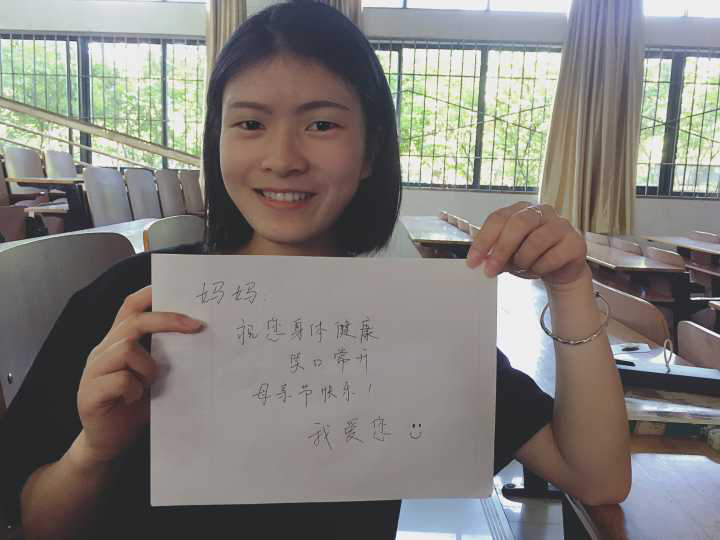 妈妈.
祝您身体健康
笑口常开
母亲节快乐！
我爱您